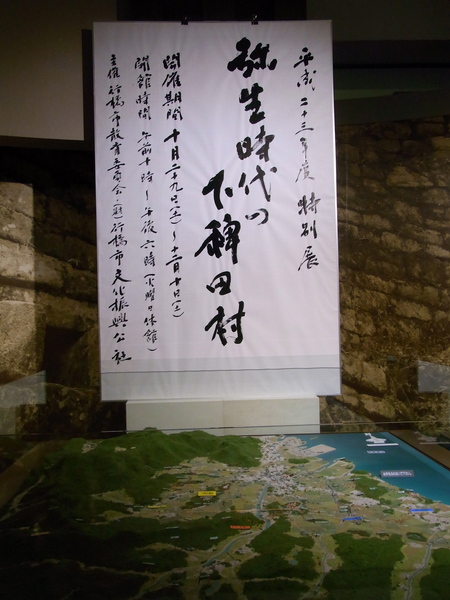 平成二十三年度 特別展
弥生時代の
下稗田村
開催期間 十月二十九日(土)〜十二月十日(土)
開館時間 午前十時〜午後六時(火曜日休館)
主催 行橋市教育委員会・(財)行橋市文化振興公社